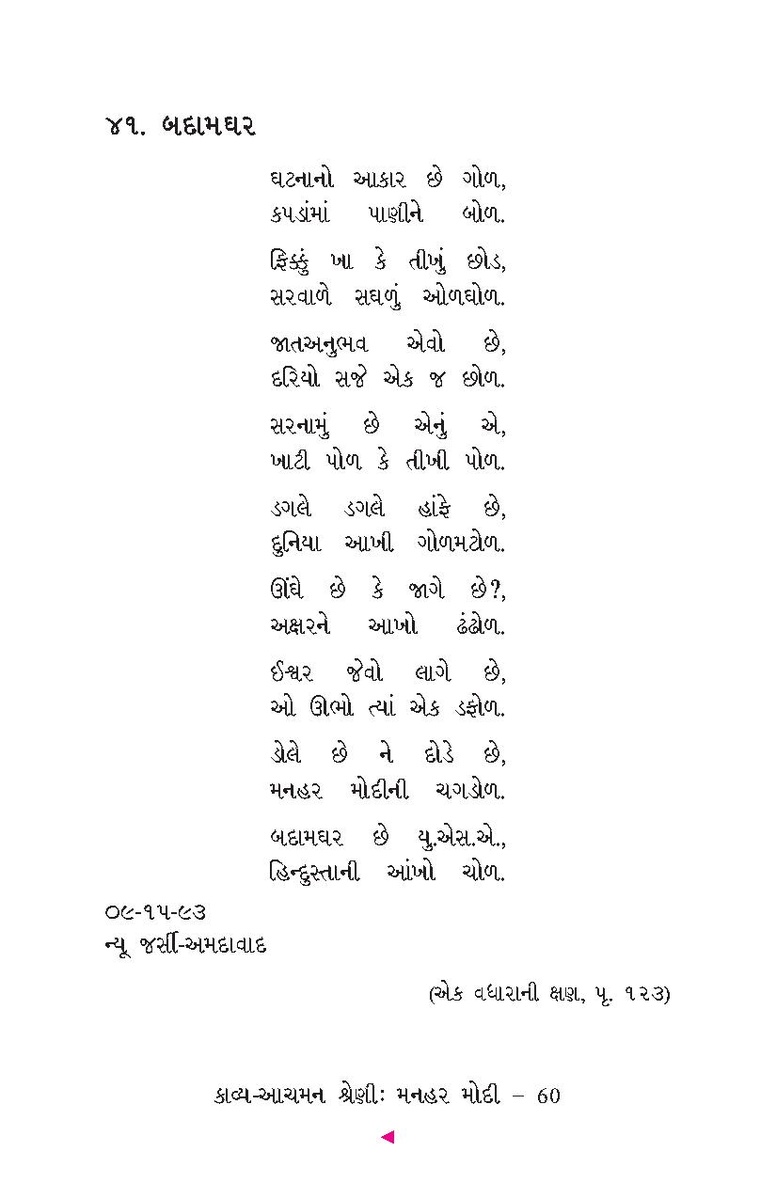 ૪૧. બદામઘર
ઘટનાનો આકાર છે ગોળ,
કપડાંમાં પાણીને બોળ.
ફિક્કું ખા કે તીખું છોડ,
સરવાળે સઘળું ઓળઘોળ.
જાતઅનુભવ એવો છે,
દરિયો સજે એક જ છોળ.
સરનામું છે એનું એ,
ખાટી પોળ કે તીખી પોળ.
ડગલે ડગલે હાંફે છે,
દુનિયા આખી ગોળમટોળ.
ઊંઘે છે કે જાગે છે?,
અક્ષરને આખો ઢંઢોળ.
ઈશ્વર જેવો લાગે છે,
ઓ ઊભો ત્યાં એક ડફોળ.
ડોલે છે ને દોડે છે,
મનહર મોદીની ચગડોળ.
બદામઘર છે યુ.એસ.એ.,
હિન્દુસ્તાની આંખો ચોળ.
૦૯-૧૫-૯૩
ન્યૂ જર્સી-અમદાવાદ
(એક વધારાની ક્ષણ, પૃ. ૧૨૩)
કાવ્ય-આચમન શ્રેણી: મનહર મોદી – 60